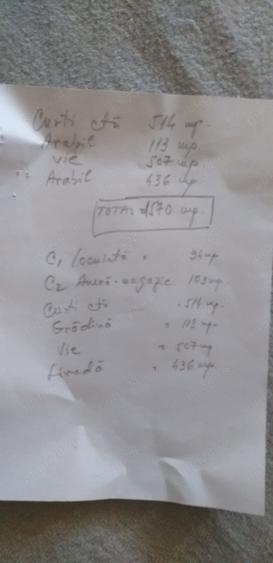 Curti ctă 514 mp.
Arabil 113 mp
Vie 507 mp
Arabil 436 mp
TOTAL 1570 mp.
C1 locuință = 94 mp
C2 Anexă-magazie 103 mp.
Curti ctă = 514 mp.
Grădină = 113 mp.
Vie = 507 mp
Livadă = 436 mp.